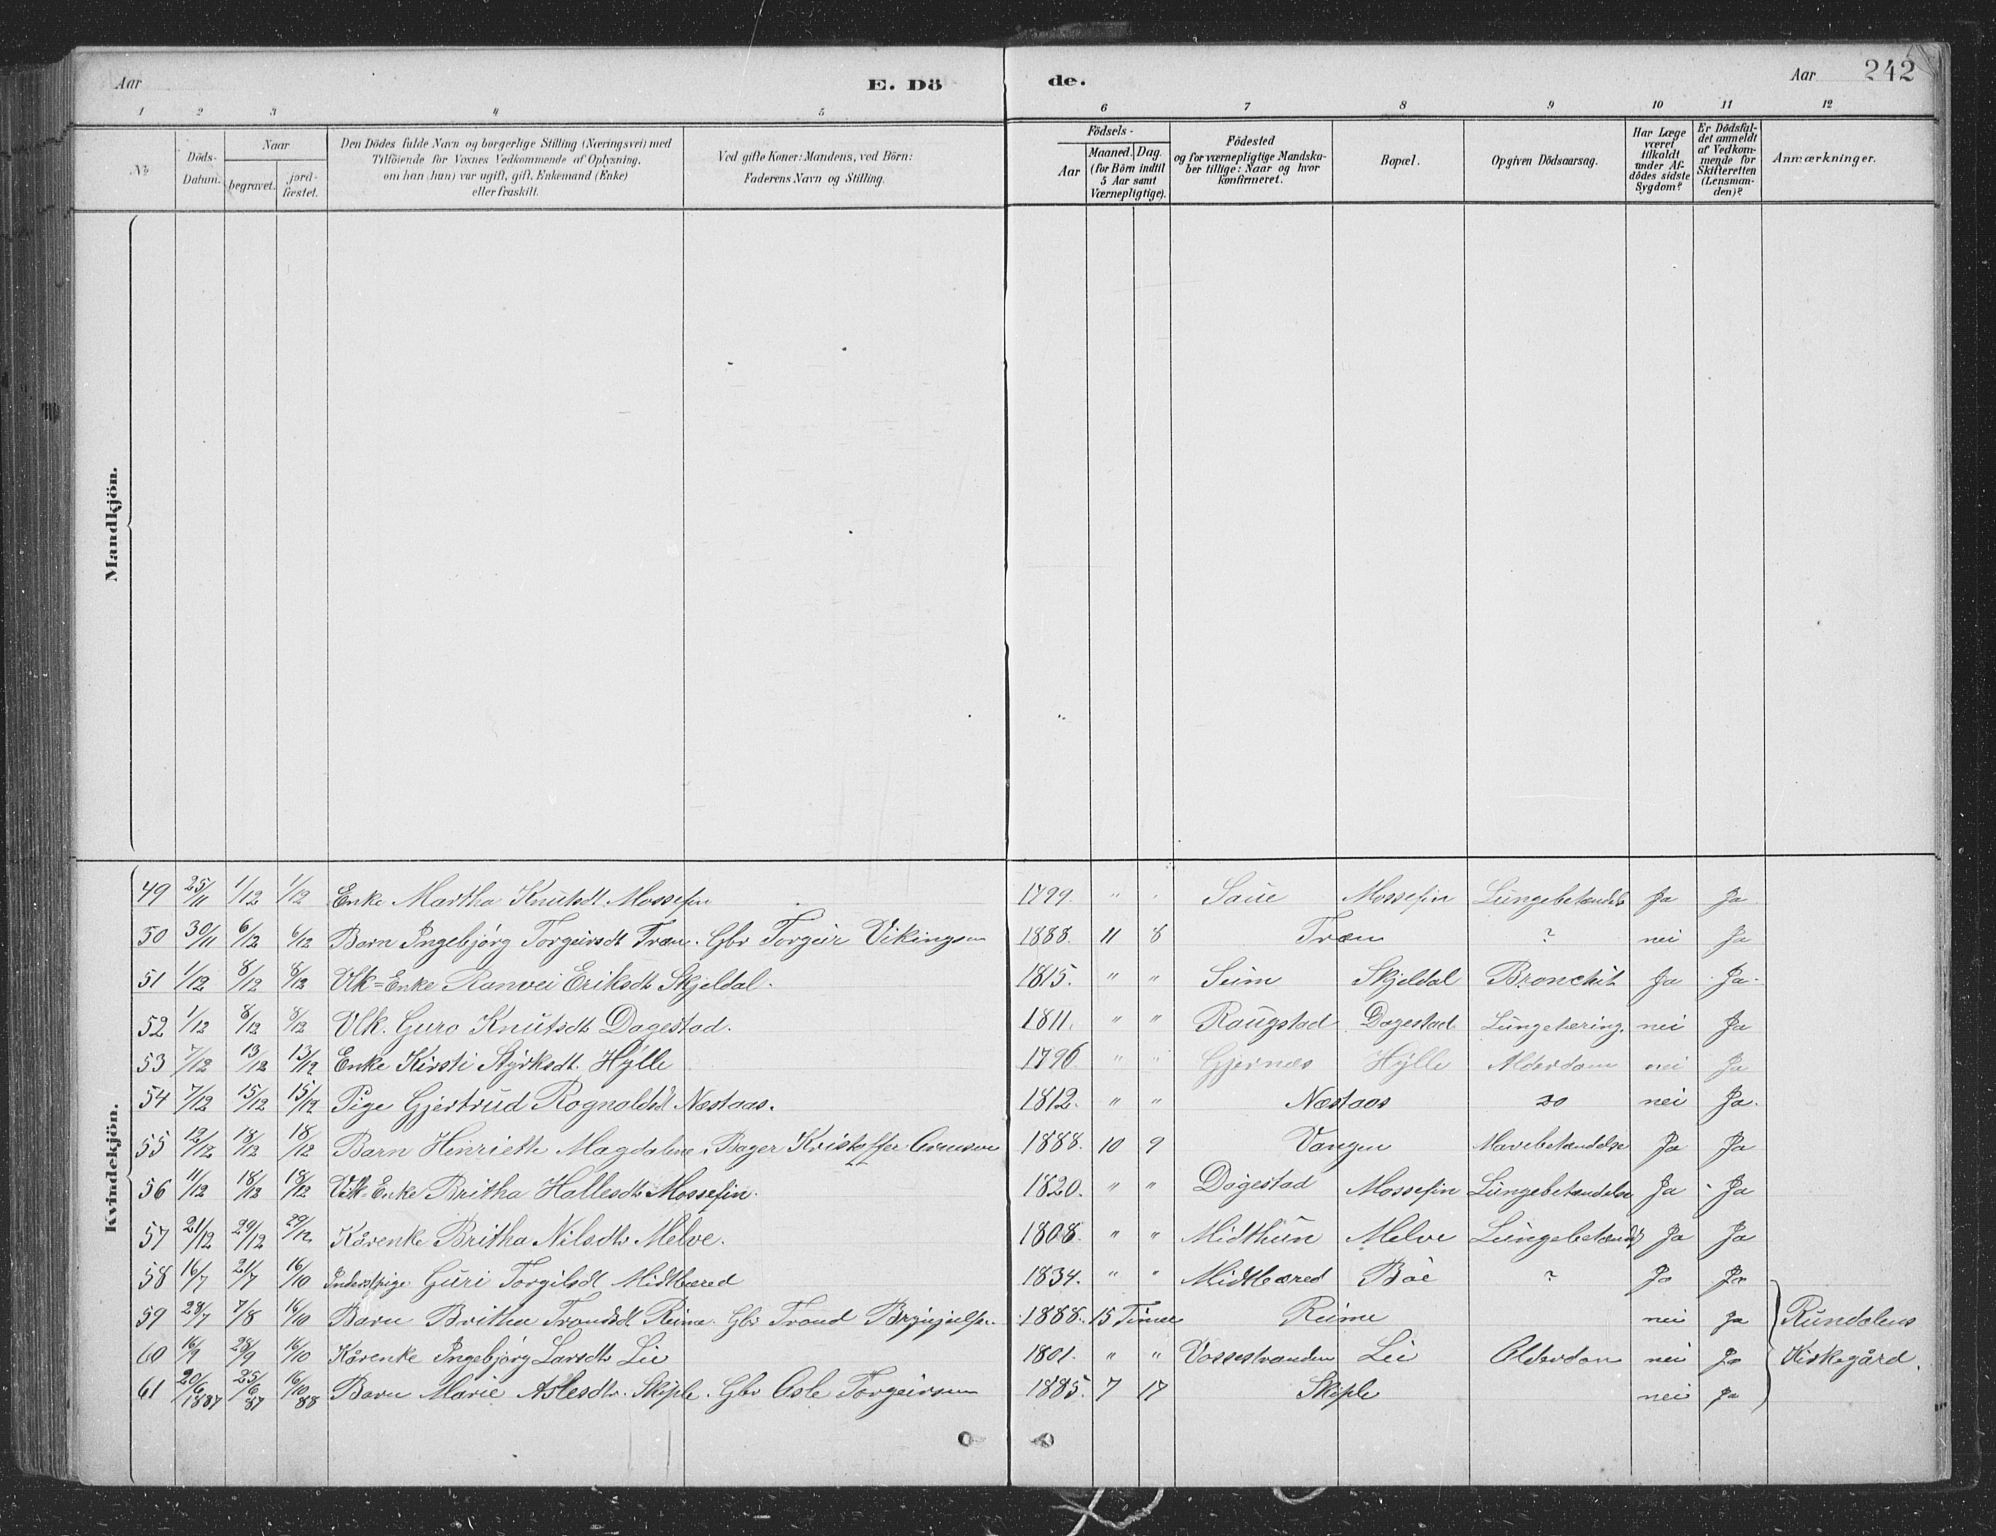 Aar
E. Dö
de.
Aar
242
1 2 3 4 5 6 7 8 9 10 11 12
No
Döds-Datum.
Naar
begravet.
jord-fæstet.
Den Dödes fulde Navn og borgerlige Stilling (Næringsvei) med
Tilföiende for Voxnes Vedkommende af Oplysning,
om han (hun) var ugift, gift, Enkemand (Enke)
eller fraskilt.
Ved gifte Koner: Mandens, ved Börn:
Faderens Navn og Stilling.
Födsels-
Aar
Maaned. Dag.
(for Börn indtil
5 Aar samt
Værnepligtige).
Födested
og for værnepligtige Mandska-
ber tillige: Naar og hvor
konfirmeret.
Bopæl.
Opgiven Dödsaarsag.
Har Læge
været
tilkaldt
under Af-
dödes sidste
Sygdom?
Er Dödsfal-
det anmeldt
af Vedkom-
mende for
Skifteretten
(Lensman-
den)?
Anmærkninger.
Mandkjön.
Kvindekjön.
49 25/11 1/12 1/12 Enke Martha Knutsdt. Mossefin 1799. " " Saue Mossefin Lungebetændels Ja Ja
50 30/11 6/12 6/12 Barn Ingebjörg Torgeirsdt Træn. Gbr Torgeir Vikingsen 1888. 11 8 Træn ? nei Ja
51 1/12 8/12 8/12 Vlk=Enke Ranvei Eriksdt Skjeldal. 1815. " " Seim Skjeldal Bronchit Ja Ja.
52 1/12 8/12 8/12 Vlk. Guro Knutsdt Dagestad. 1811. " " Raugstad Dagestad Lungetæring. nei Ja
53 7/12 13/12 13/12 Enke Kirsti Styrksdt. Hylle 1796 " " Gjernæs Hylle Alderdom nei Ja
54 7/12 15/12 15/12 Pige Gjertrud Rognaldsd Næstaas. 1812. " " Næstaas do nei Ja.
55 12/12 18/12 18/12 Barn Henriette Magdalene. Bager Kristoffer 1888. 10 9 Vangen Mavebetændelse Ja Ja
56 11/12 18/12 18/12 Vlk Enke Britha Hallesdt Mossefin. 1820. " " Dagestad Mossefin Lungebetændelse Ja Ja
57 21/12 29/12 29/12 Kårenke Britha Nilsdt. Melve. 1808. " " Midthun Melve Lungebetænd. Ja Ja
58 16/7 21/7 16/10 Inderstpige Guri Torgilsdt Midtbæred 1834. " " Midtbæred Böe ? Ja Ja
59 28/7 7/8 16/10 Barn Britha Trondsdt Reime. Gbr Trond 1888. 15 Timer Reime nei Ja Rundalens
60 16/9 28/9 16/10 Kårenke Ingebjörg Larsdt. Lie 1801. " " Vossestranden Lie Alderdom nei Ja Kirkegård.
61 20/6 1887 25/6 87 16/10 88 Barn Marie Aslesdt. Skiple. Gbr Asle Torgeirsen 1885. 7 17 Skiple nei Ja